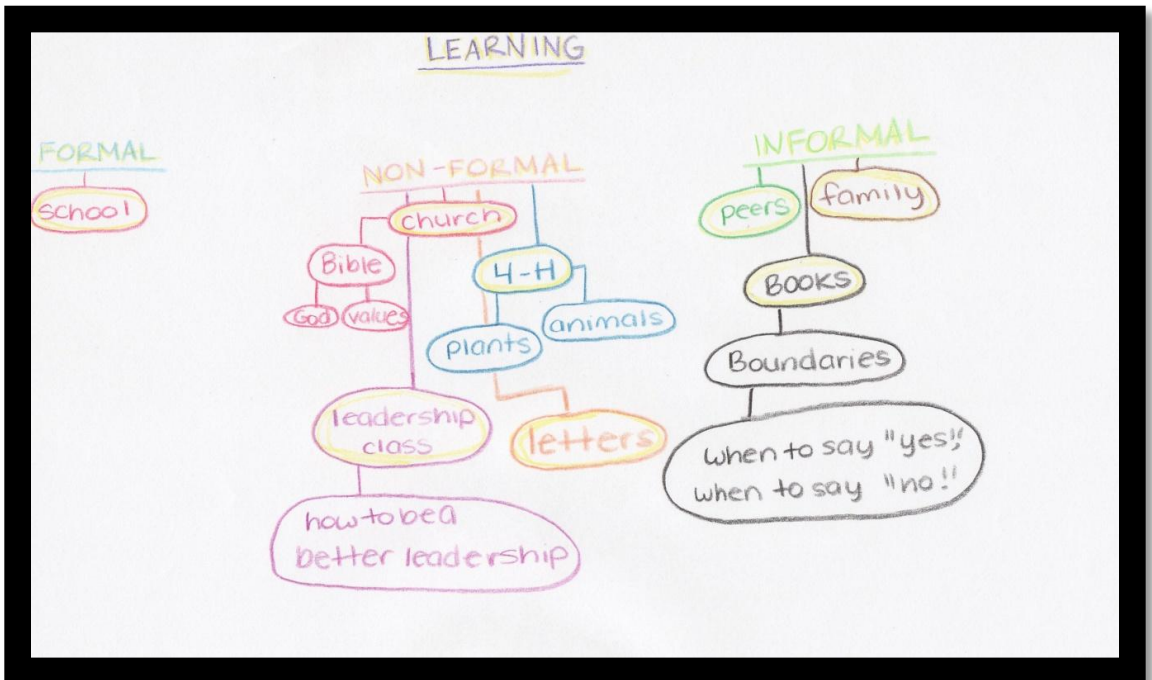 LEARNING
FORMAL
school
NON-FORMAL
church
Bible
God
values
4-H
plants
animals
leadership
class
how to be a
better leadership
letters
INFORMAL
peers
family
BOOKS
Boundaries
when to say "yes",
when to say "no!"